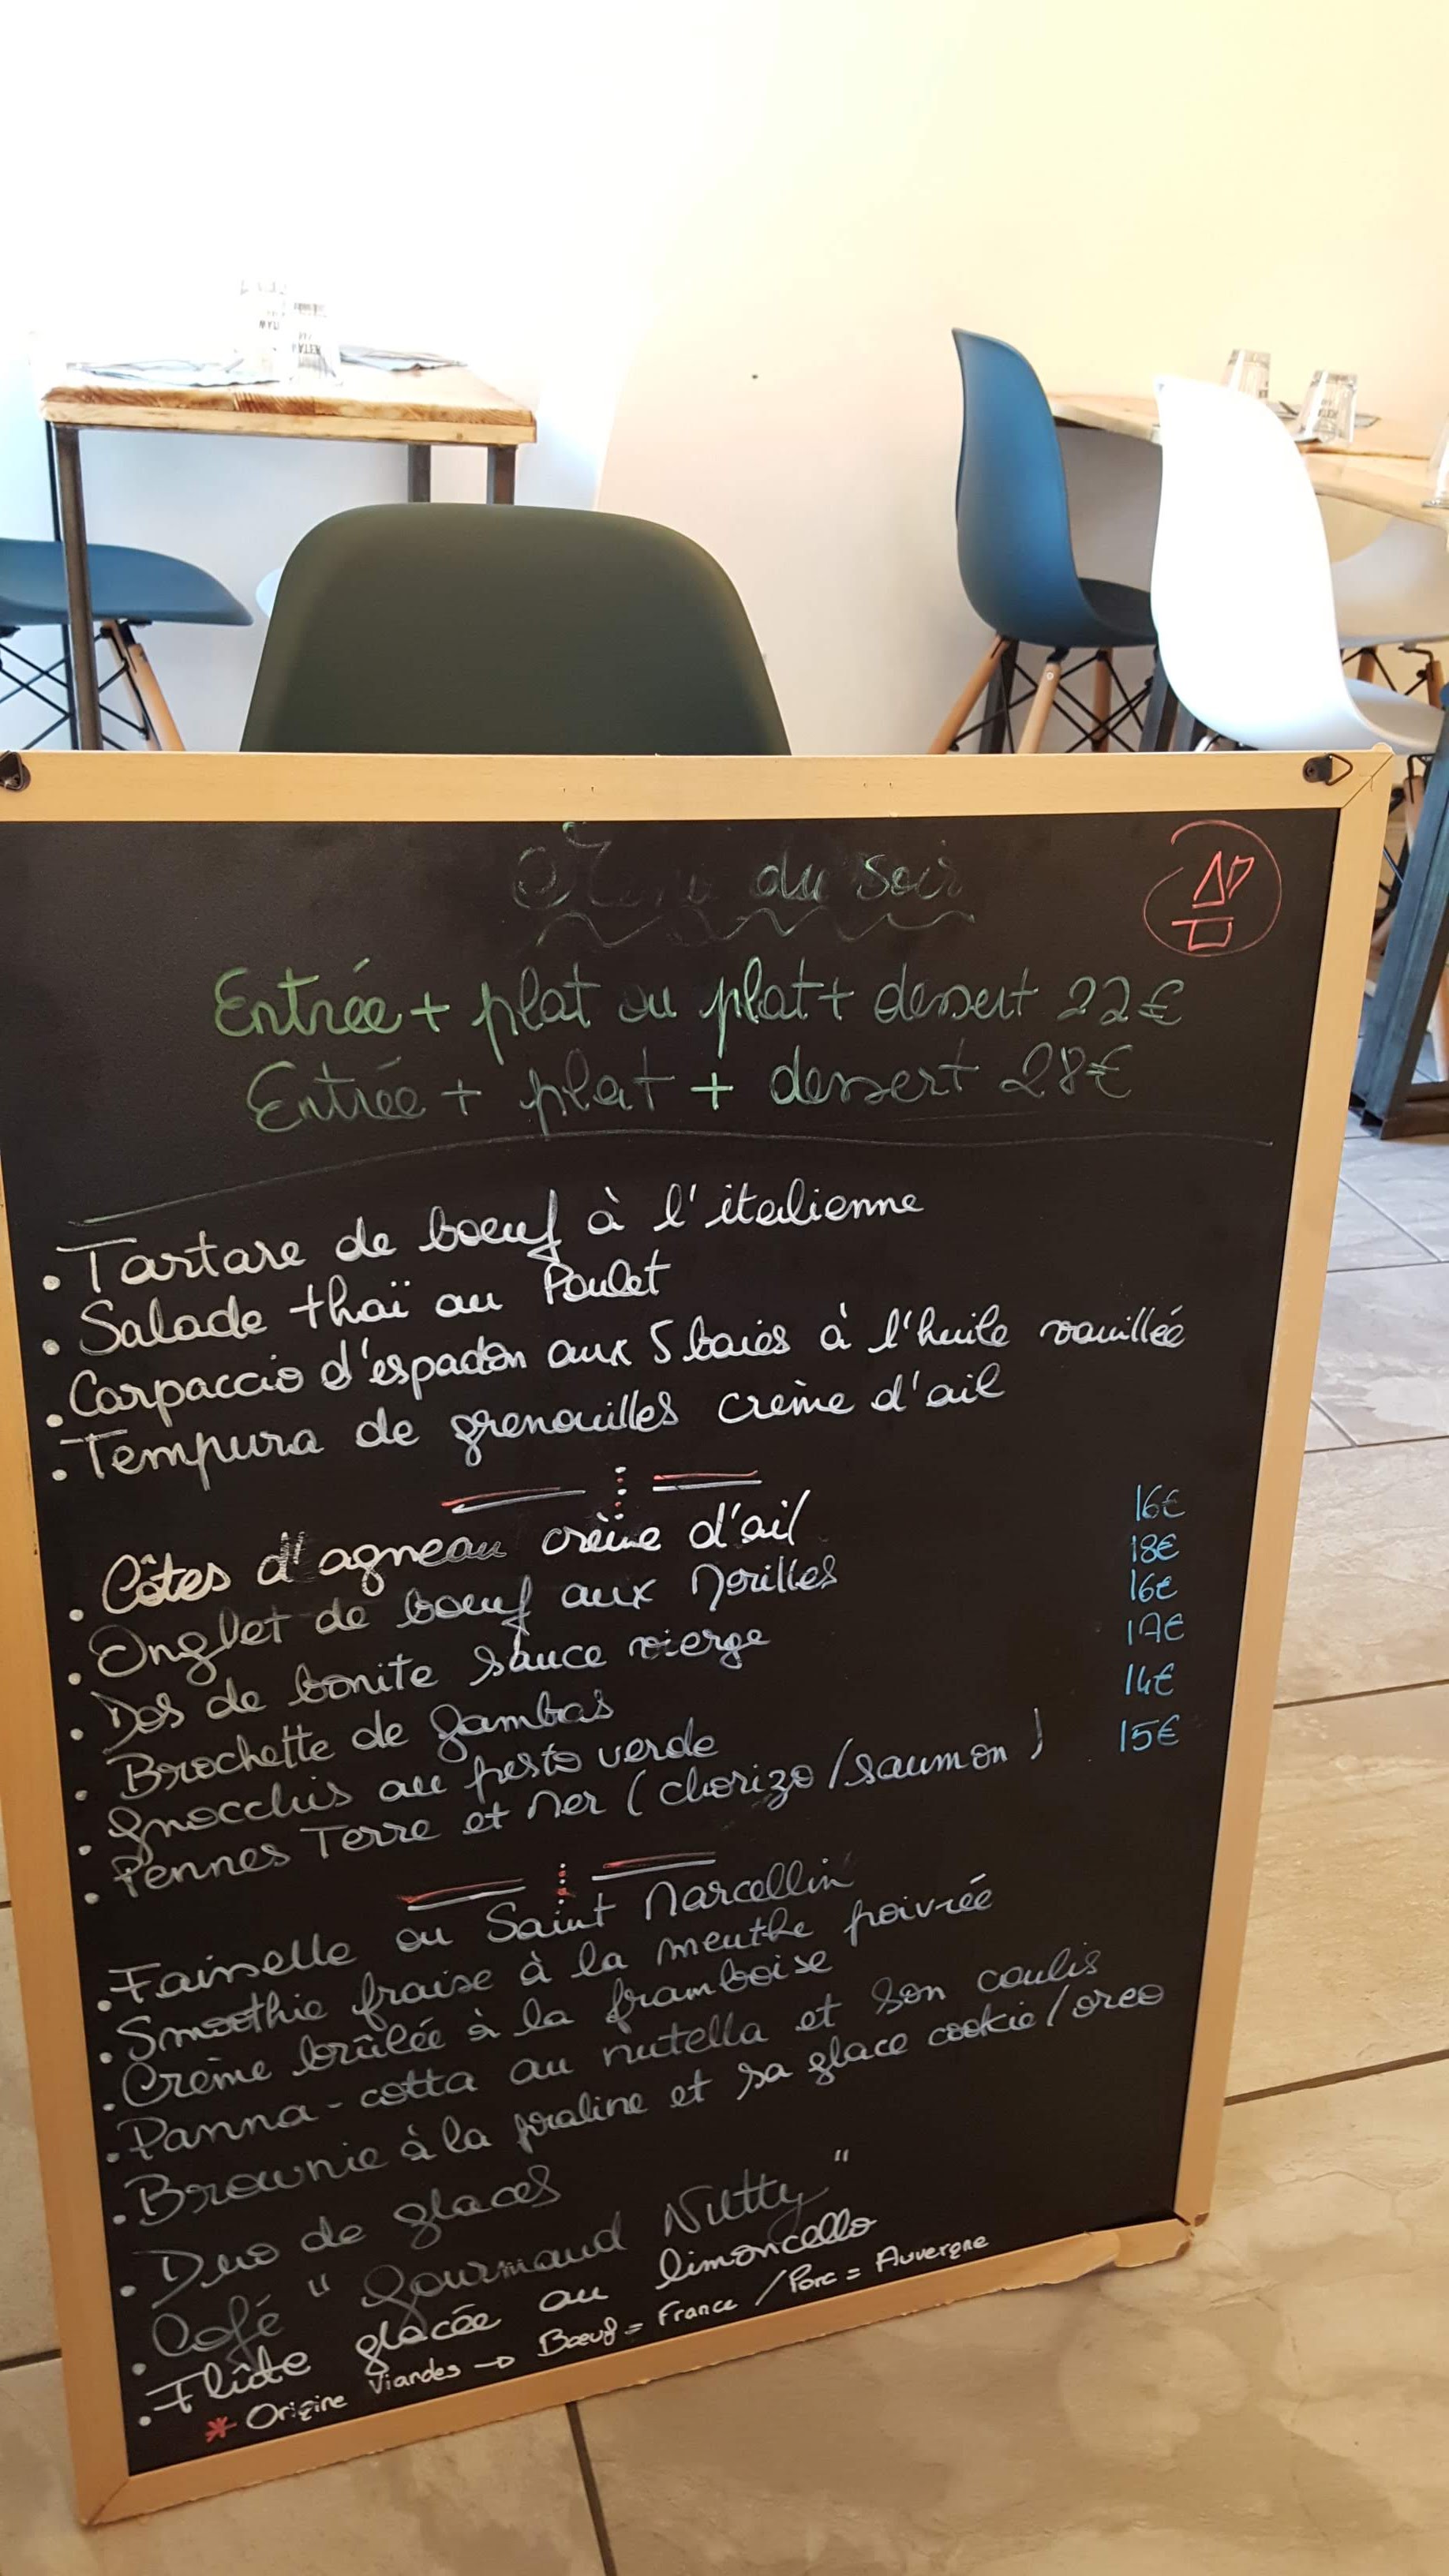 Menu du Soir
Entrée + plat ou plat + dessert 22€
Entrée + plat + dessert 28€
• Tartare de boeuf à l'italienne
• Salade thaï au Poulet
• Carpaccio d'espadon aux 5 baies à l'huile vanillée
• Tempura de grenouilles crème d'ail
• Côtes d'agneau crème d'ail 16€
• Onglet de boeuf aux Morilles 18€
• Dos de bonite sauce vierge 16€
• Brochette de gambas 17€
• Gnocchis au pesto verde 14€
• Pennes Terre et Mer (chorizo/saumon) 15€
• Faisselle ou Saint Marcellin
• Smoothie fraise à la menthe poivrée
• Crème brûlée à la framboise
• Panna-cotta au nutella et son coulis
• Brownie à la praline et sa glace cookie/oreo
• Duo de glaces
• Café "Gourmand Nutty"
• Flûte glacée au limoncello
* Origine Viandes → Bœuf = France / Porc = Auvergne